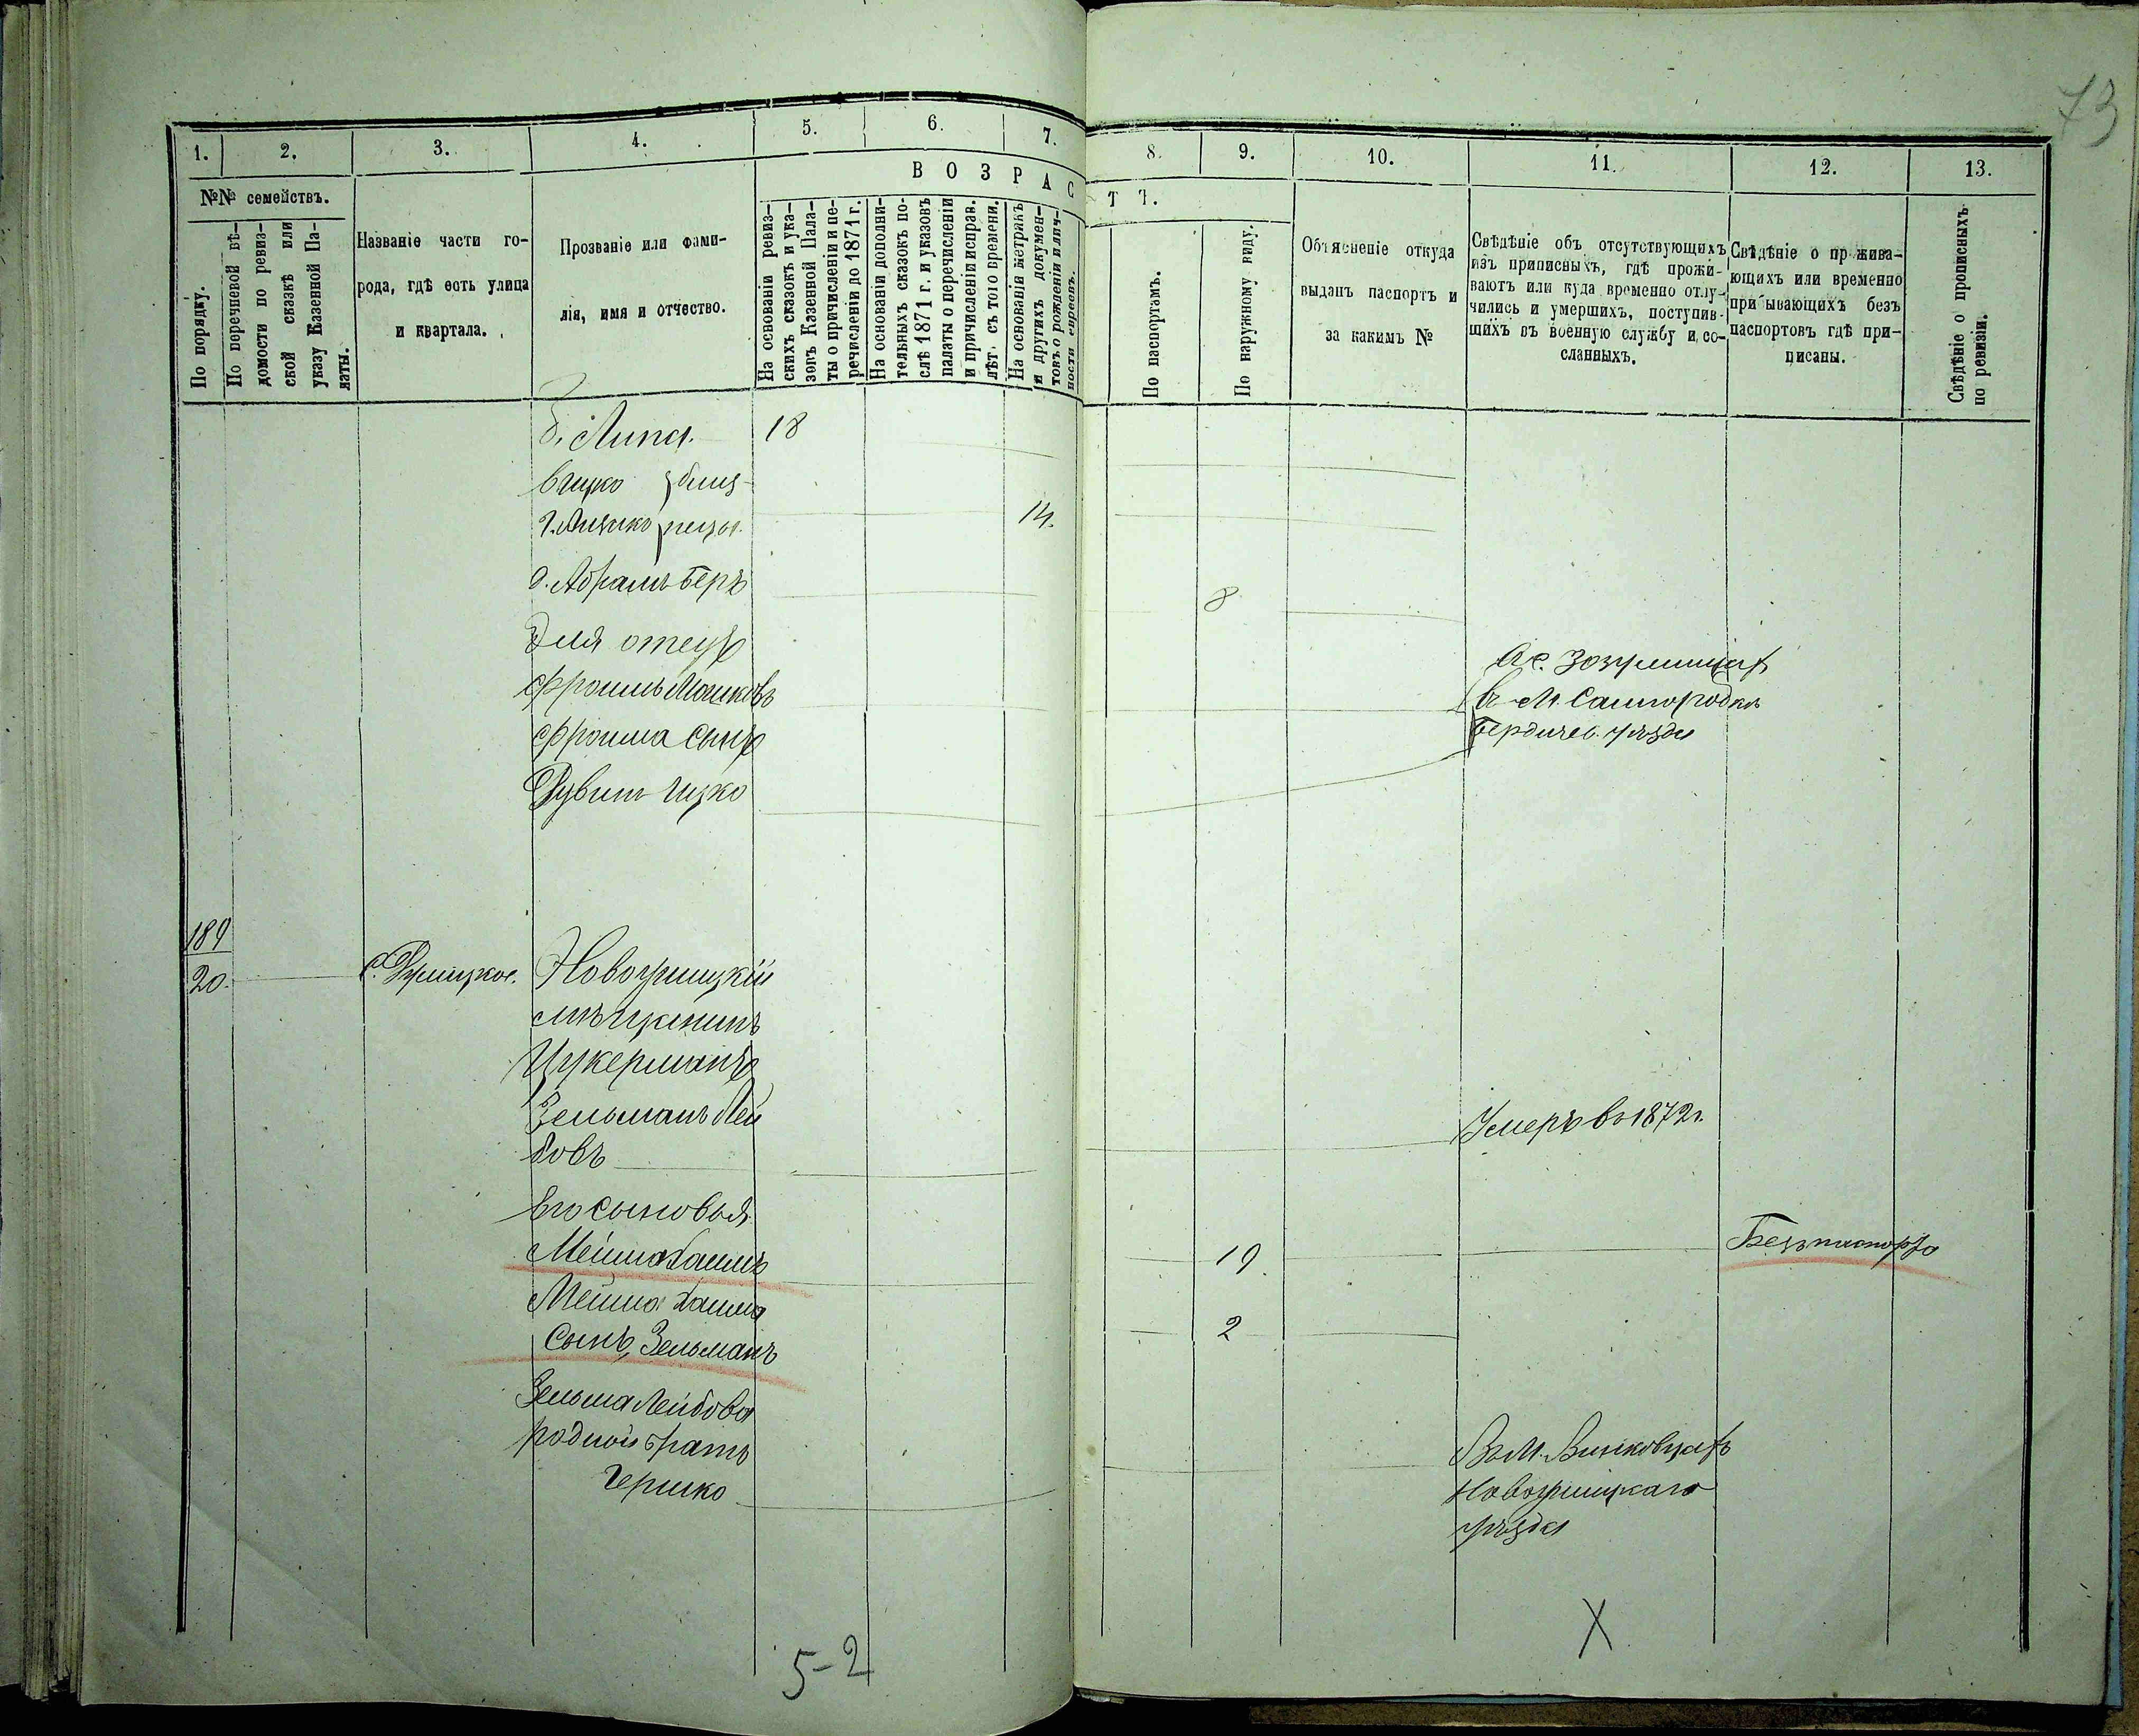 73
1. 2. 3. 4. 5. 6. 7. 8. 9. 10. 11. 12. 13.
№№ семействъ.
ВОЗРАСТЪ.
По порядку.
По перечневой вѣ-
домости по ревиз-
ской сказкѣ или
указу Казенной Па-
латы.
Названіе части го-
рода, гдѣ есть улица
и квартала.
Прозваніе или фами-
лія, имя и отчество.
На основаніи ревиз-
скихъ сказокъ и ука-
зовъ Казенной Пала-
ты о причисленіи и пе-
речисленіи до 1871 г.
На основаніи дополни-
тельныхъ сказокъ по-
слѣ 1871 г. и указовъ
палаты о перечисленіи
и причисленіи исправ.
лѣт. съ того времени.
На основаніи метрикъ
и другихъ докумен-
товъ о рожденіи и лич-
ности евреевъ.
По паспортомъ.
По наружному виду.
Объясненіе откуда
выданъ паспортъ и
за какимъ №
Свѣдѣніе объ отсутствующихъ
изъ приписныхъ, гдѣ прожи-
ваютъ или куда временно отлу-
чились и умершихъ, поступив-
шихъ въ военную службу и со-
сланныхъ.
Свѣдѣніе о прожива-
ющихъ или временно
прибывающихъ безъ
паспортовъ гдѣ при-
писаны.
Свѣдѣніе о прописныхъ
по ревизіи.
Липа. 18
14.
д. Абрамъ Беръ 8
Фроимъ Мошковъ
въ М. Самгородкѣ
Фроима сынъ
Бердичев. уѣзда
Рувинъ Ицко
189
20. с. Ружицкое. Новоушицкій
мѣщанинъ
Цукерманъ
Зельманъ Лей
бовъ Умеръ въ 1872 г.
Его сыновья
19. Безъ паспорта
Сынъ, Зельманъ 2
Зельма Лейбова
родной братъ
Гершко
Въ М. Виньковцахъ
Новоушицкаго
уѣзда
X
5-2